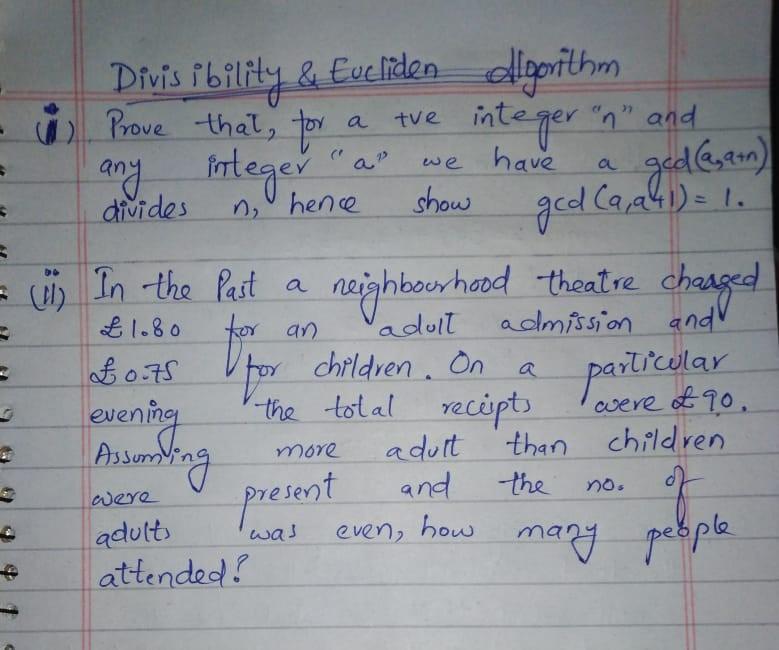 Divisibility & Eucliden Algorithm
(i) Prove that, for a +ve integer "n" and
any integer "a" we have a gcd(a,a+n)
divides n, hence show gcd(a,a+1) = 1.
(ii) In the Past a neighbourhood theatre chaaged
£1.80 for an adult admission and
£0.75 for children. On a particular
evening the total receipts were £90.
Assumving more adult than children
were present and the no. of
adults was even, how many people
attended?